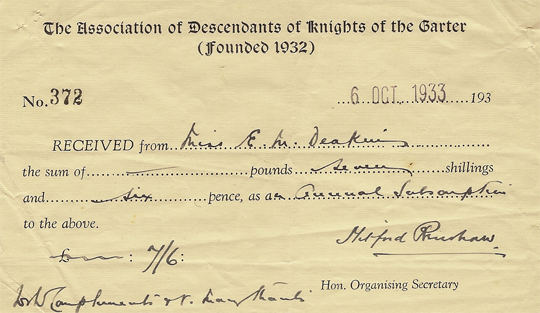 The Association of Descendants of Knights of the Garter
(Founded 1932)
No. 372 6 OCT. 1933 193
RECEIVED from Miss E. M. Deakin
the sum of — pounds seven shillings
and six pence, as an Annual Subscription
to the above.
7/6:
Hon. Organising Secretary
With Compliments & v. many thanks